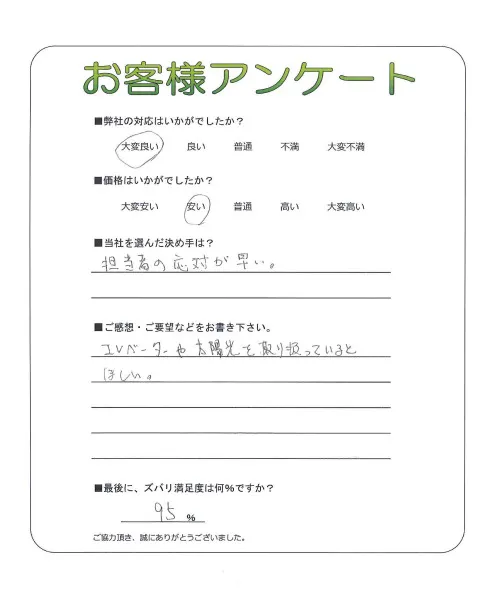 お客様アンケート
■弊社の対応はいかがでしたか？
大変良い 良い 普通 不満 大変不満
■価格はいかがでしたか？
大変安い 安い 普通 高い 大変高い
■当社を選んだ決め手は？
担当者の応対が早い。
■ご感想・ご要望などをお書き下さい。
エレベーターや太陽光を取り扱っていると
ほしい。
■最後に、ズバリ満足度は何％ですか？
95 ％
ご協力頂き、誠にありがとうございました。